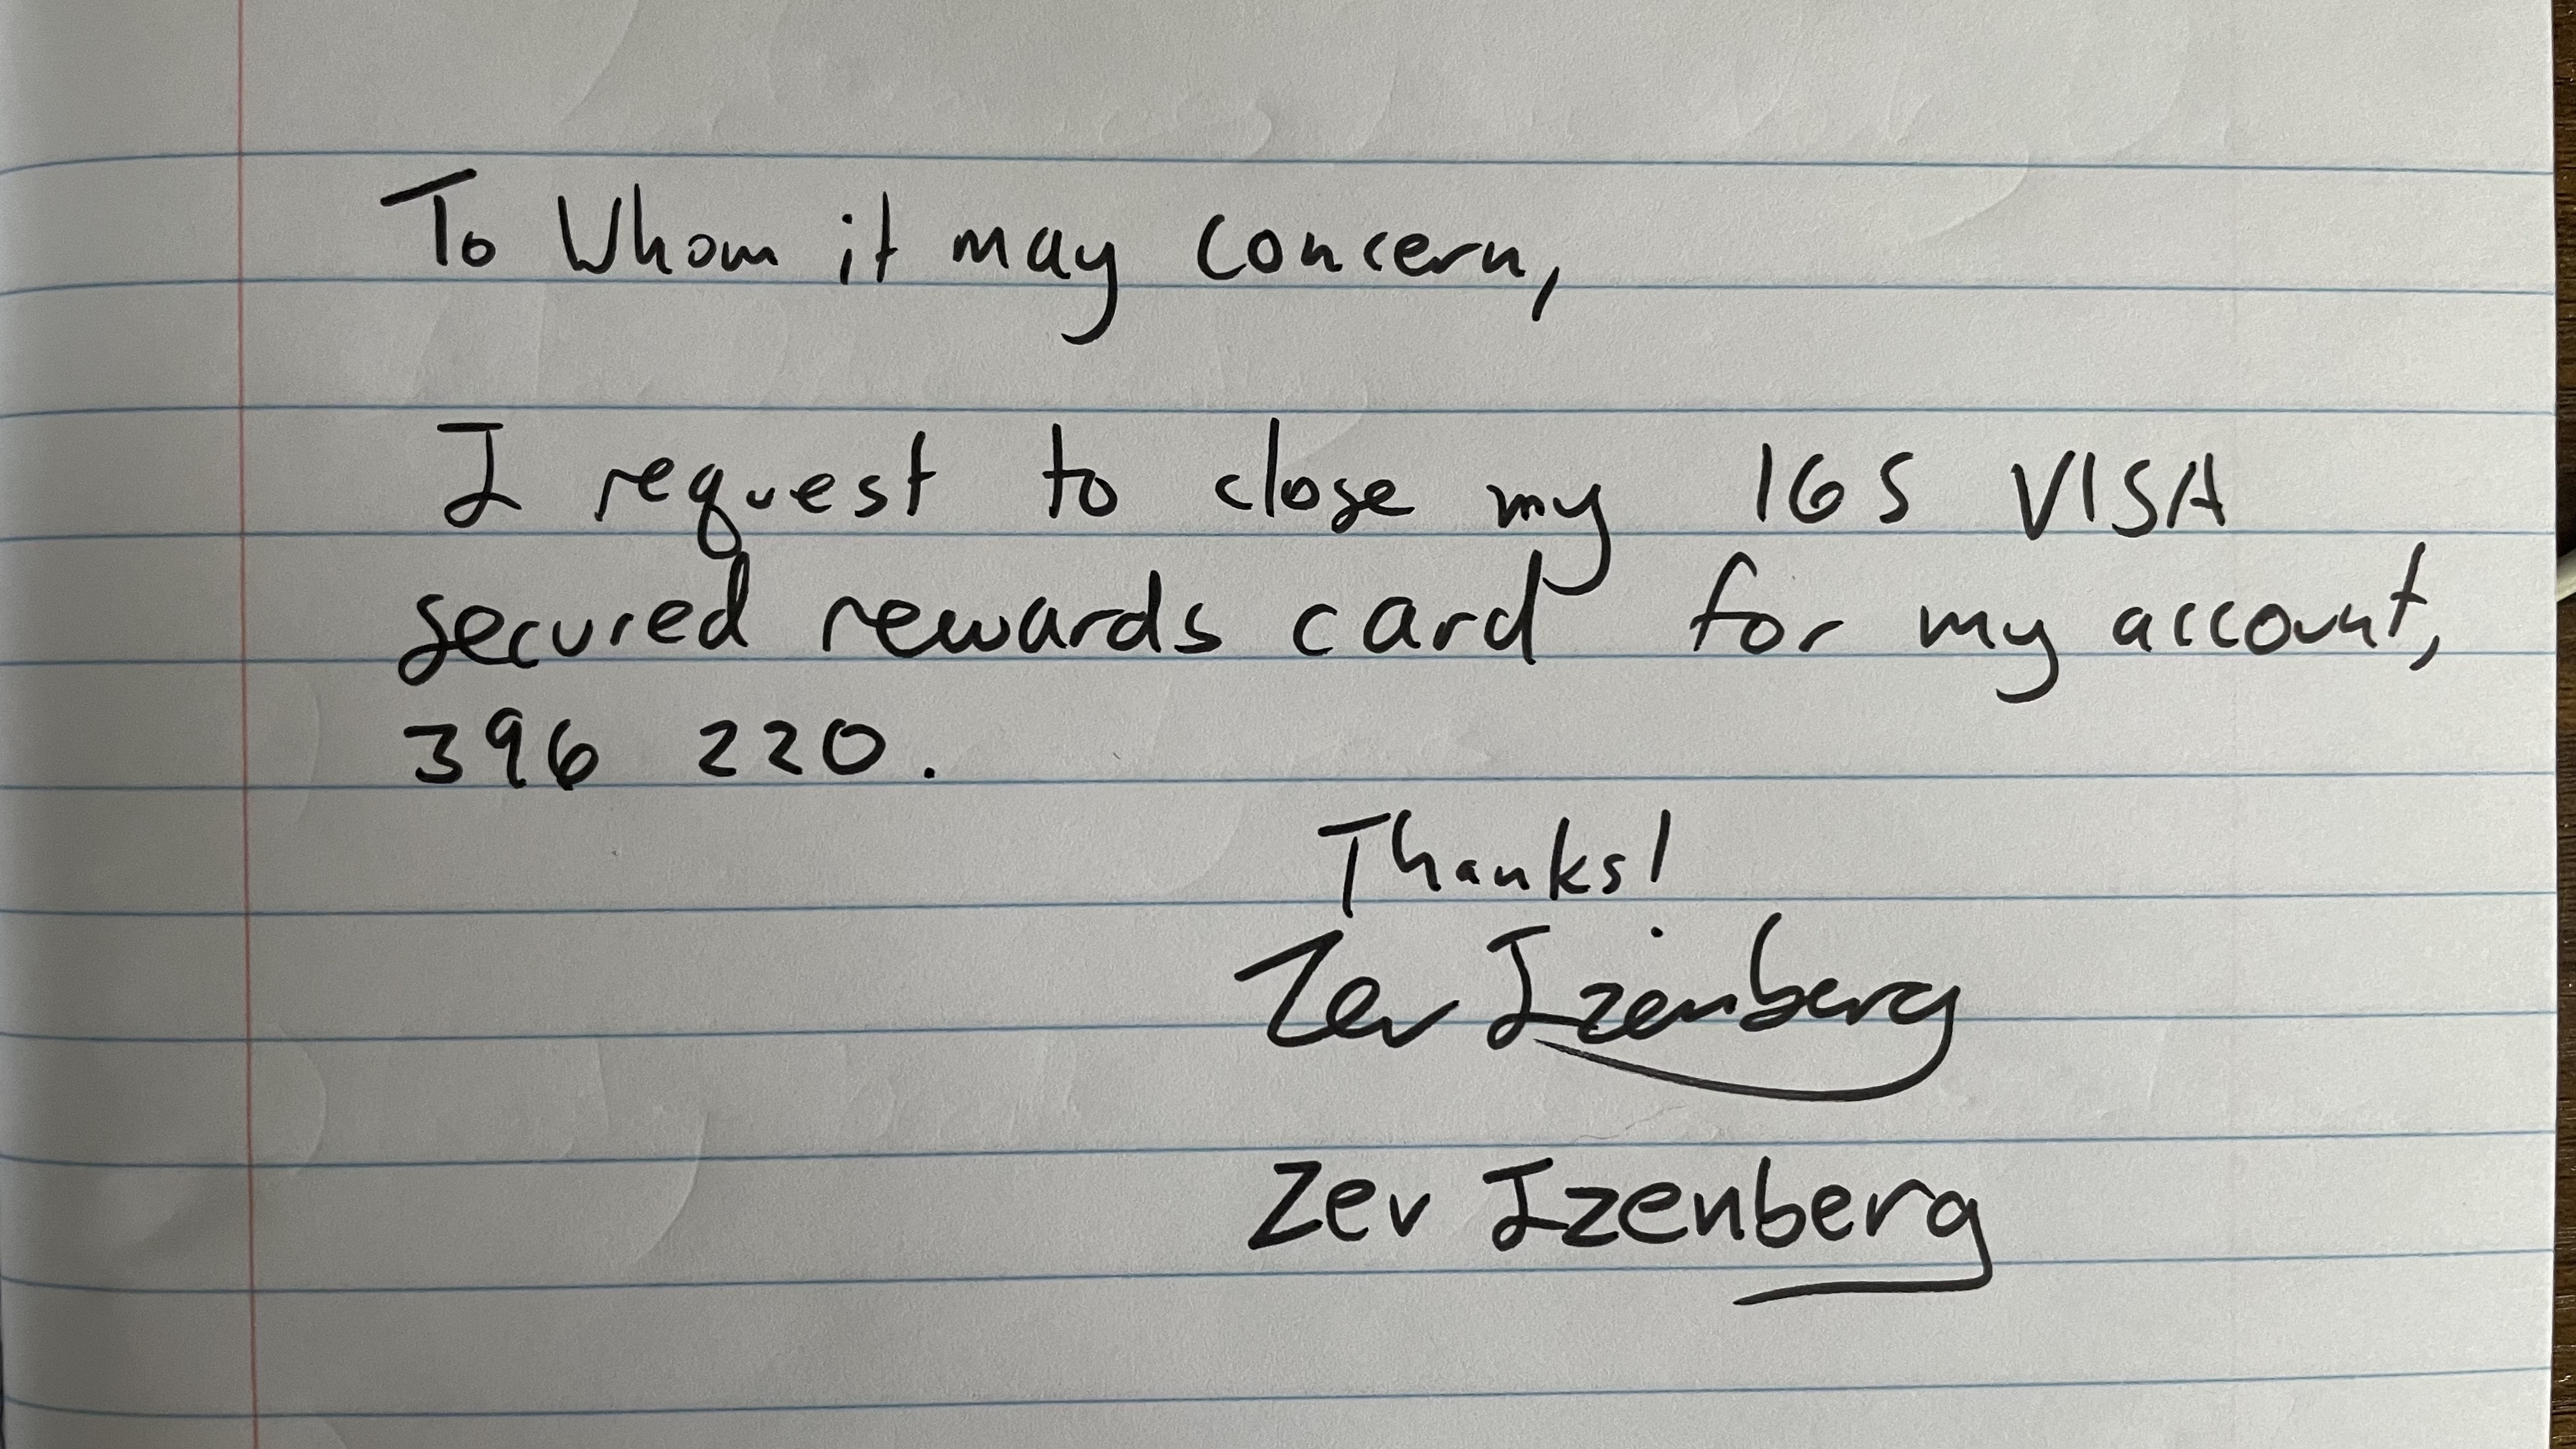 To Whom it may concern,
I request to close my IGS VISA
secured rewards card for my account,
396 220.
Thanks!
Zev Izenberg
Zev Izenberg